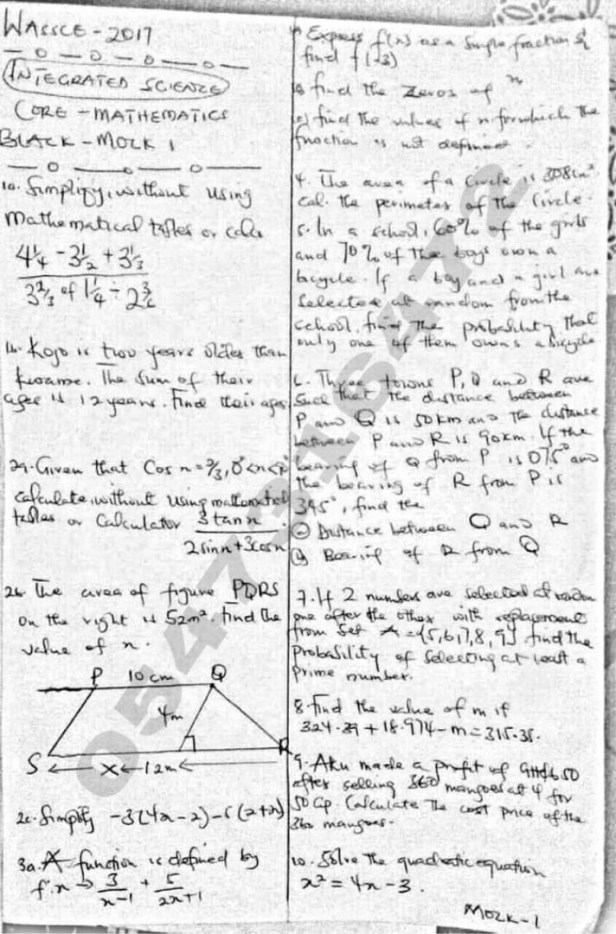 WASSCE - 2017
INTEGRATED SCIENCE
CORE - MATHEMATICS
BLACK - MOCK 1
1a. Simplify, without using
Mathematical tables or calc
4¼ - 3½ + 3⅓
3⅔ of 1¼ ÷ 2
1b. Kojo is two years older than
Kwame. The sum of their
ages is 12 years. Find their ages
2a. Given that Cos x = 2/3, 0° < x <
calculate, without using mathematical
tables or Calculator 3 tan x
2 sin x + 3 cos x
2b. The area of figure PQRS
on the right is 52m². Find the
value of x.
P 10 cm Q
4m
S x 12m R
2c. Simplify -3(4x - 2) - (2 + x)
3a. A function is defined by
f: x → 3/x-1 + 5/2x+1
Express f(x) as a single fraction &
find f(-3)
find the zeros of
find the values of x for which the
function is not defined.
4. The area of a circle is 308cm²
cal. the perimeter of the circle.
5. In a school, 60% of the girls
and 70% of the boys own a
bicycle. If a boy and a girl are
selected at random from the
school, find the probability that
only one of them owns a bicycle
6. Three towns P, Q and R are
such that the distance between
P and Q is 50km and the distance
between P and R is 90km. If the
bearing of Q from P is 075° and
the bearing of R from P is
, find the
(a) Distance between Q and R
(b) Bearing of R from Q
7. If 2 numbers are selected at random
one after the other with replacement
from Set A = {5,6,7,8,9} find the
Probability of selecting at least a
Prime number.
8. Find the value of m if
324.39 + 18.974 - m = 315.35.
9. Aku made a profit of
after selling 360 mangoes at 4 for
50 Gp. Calculate the cost price of the
360 mangoes.
10. Solve the quadratic equation
x² = 4x - 3.
MOCK-1
0547316472